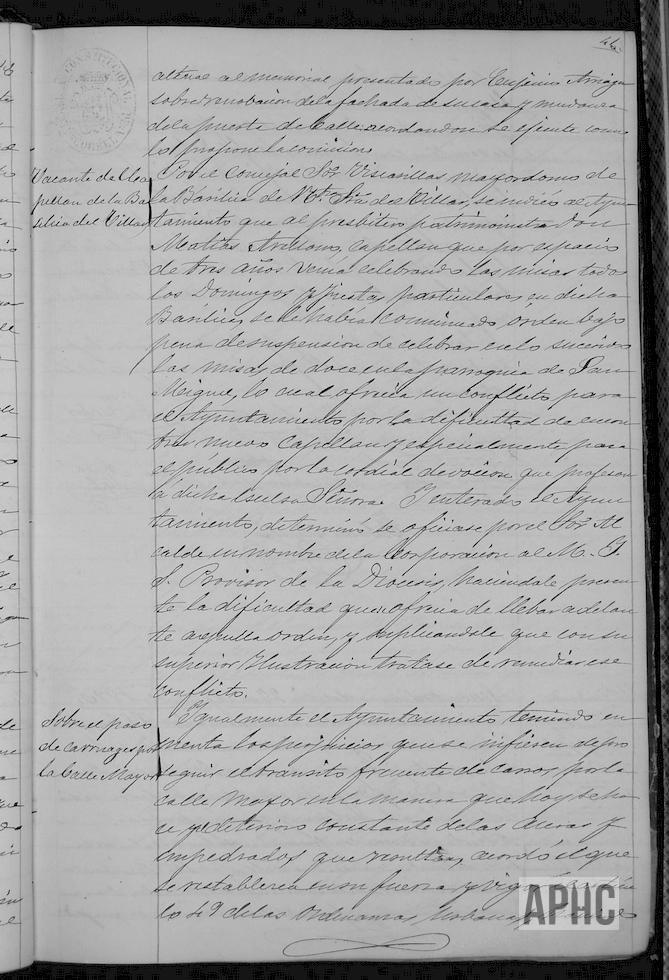 46.
al tenal al memorial presentado por Eugenio Arriga
sobre renobacion de la fachada de su casa y mudanza
de la puerta de Calle acordandose se ejecute como
lo propone la comision
Vacante de Cha
pellan de la Ba
silica del Villar
Por el Concejal Sor. Viscarillas mayordomo de
la Basilica de Ntra. Sra. del Villar, se indicó al Ayun
tamiento que al presbitero patrimonista Don
Matias Arellano, Capellan que por espacio
de tres años venia celebrando las misas todos
los Domingos y fiestas particulares en dicha
Basilica, se le habia comunicado orden bajo
pena de suspension de celebrar en lo sucesivo
las misas de doce en la parroquia de San
Miguel, lo cual ofrecia un conflicto para
el Ayuntamiento por la dificultad de encon
trar nuevo Capellan y especialmente para
el público por la cordial devocion que profesan
á dicha Señora. Y enterado el Ayun
tamiento, determinó se oficiase por el Sor. Al
calde en nombre de la Corporacion al M. Y.
S. Provisor de la Diocesis, haciendole presen
te la dificultad que ofrecia de llebar adelan
te aquella orden, y suplicandole que con su
superior Ilustracion tratase de remediar ese
conflicto.
Sobre el paso
de carruages por
la Calle Mayor
Ygualmente el Ayuntamiento teniendo en
cuenta los perjuicios que se infieren de pro
seguir el transito frecuente de carros por la
calle Mayor en la manera que hoy se ha
ce y el deterioro constante de las aceras y
empedrados que resulta, acordó el que
se restablezca en su fuerza y vigor
lo 49 de las Ordenanzas Urbanas
APHC